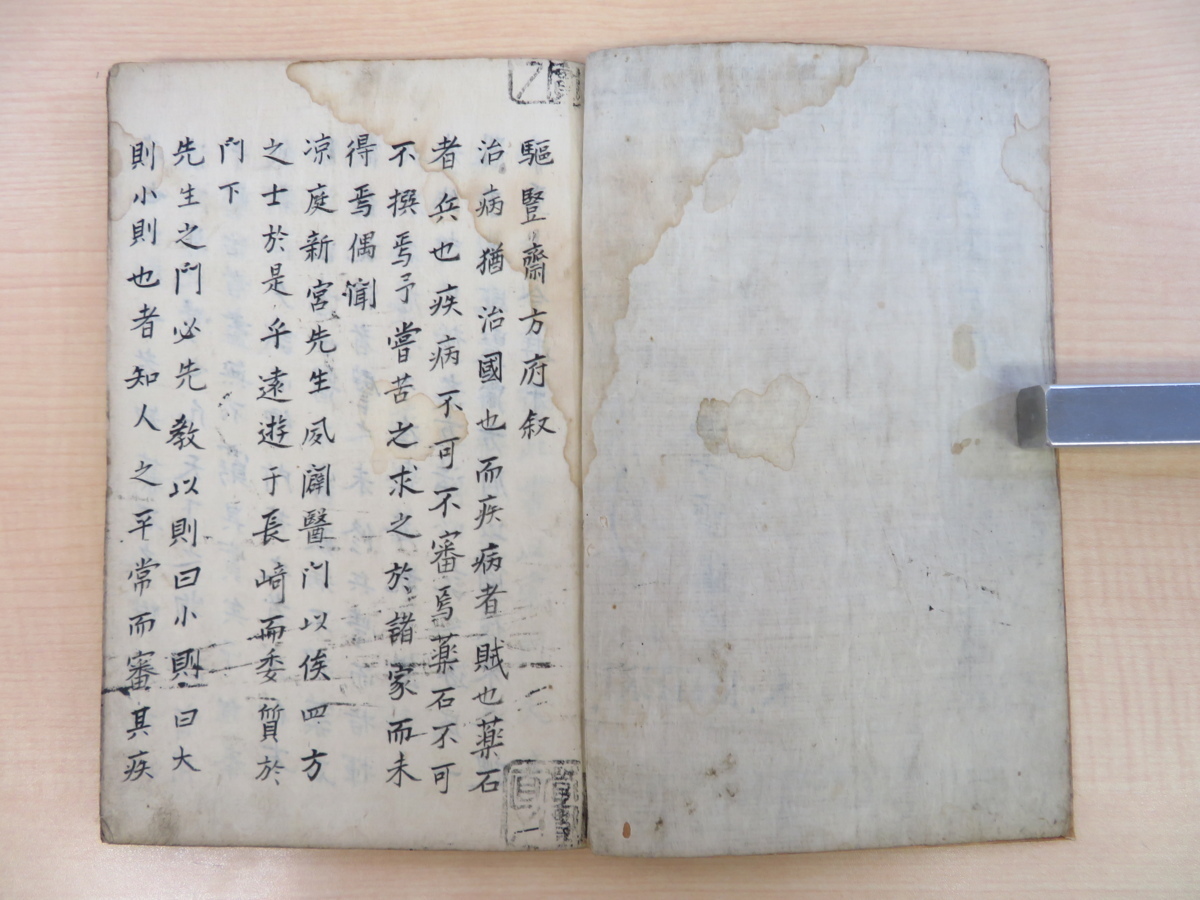 驅豎齋方府叙
治病猶治國也而疾病者賊也藥石
者兵也疾病不可不審焉藥石不可
不撰焉予嘗苦之求之於諸家而未
得焉偶聞
凉庭新宮先生夙闢醫門以俟四方
之士於是乎遠遊于長崎而委質於
門下
先生之門必先教以則曰小則曰大
則小則也者知人之平常而審其疾